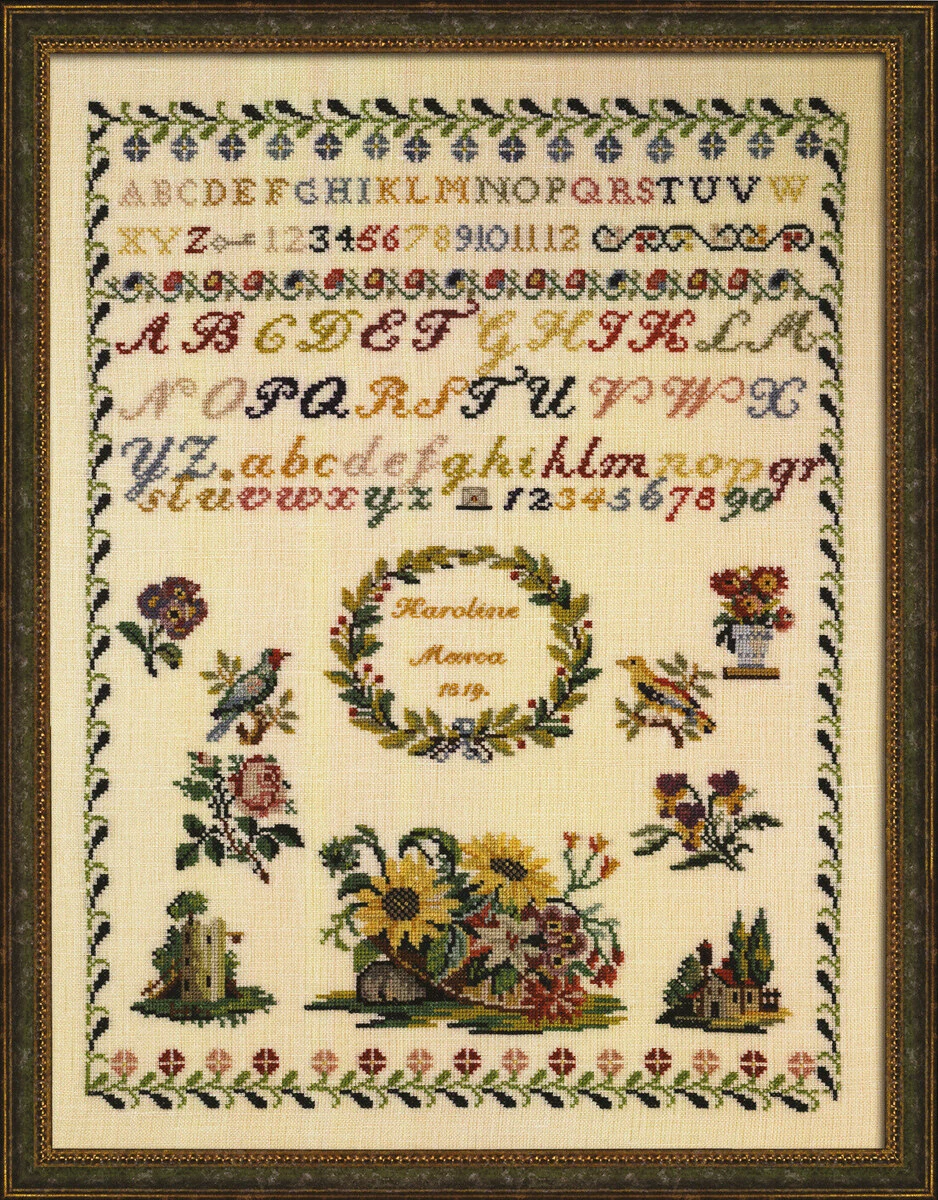 ABCDEFGHIKLMNOPQRSTUVW
XYZ 12 34 56 78 9 10 11 12
A B C D E F G H I K L M
N O P Q R S T U V W X
Y Z . a b c d e f g h i k l m n o p q r
s t u v w x y z 1 2 3 4 5 6 7 8 9 0
Karoline
Marca
1819.